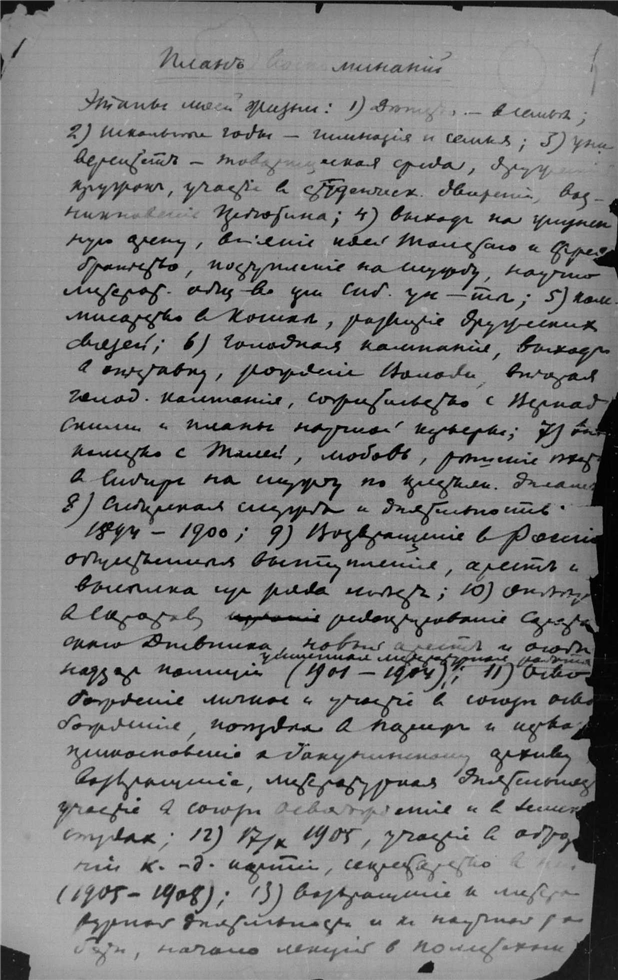 Планъ воспоминаній
Этапы моей жизни: 1) Дѣтст. – семья;
2) школьные годы – гимназія и семья; 3) уни
верситетъ – товарищеская среда, дружескій
кружокъ, участіе в студенческ. движеніи, воз-
никновеніе Пріютина; 4) выходъ на
ную арену, вліяніе идей Толстого и Фрея
братство, поступленіе на службу, научно
литерат. общ-во при Спб. ун–тѣ; 5) ком-
миссарство в Кошкѣ, развитіе дружескихъ
связей; 6) голодная кампанія, выходъ
в отставку, рожденіе Володи, вторая
голод. кампанія, сожительство с Вернад
скими и планы научной карьеры; 7)
с , любовь, рѣшеніе ѣхать
в Сибирь на службу по дѣламъ
8) Сибирская служба и дѣятельность
1894 – 1900; 9) Возвращеніе в Россію
общественныя выступленія, арестъ и
высылка изъ ряда мѣстъ; 10)
в Саратовъ редактированіе Сарато
скаго Дневника, новый арестъ и особый
надзоръ полиціи усиленная литературная работа (1901 – 1904); 11) Осво
божденіе личное и участіе в союзѣ осво
божденія, поѣздка в Парижъ и
прикосновеніе к Бакунинскому архиву
Возвращеніе, литературная дѣятельность
участіе в союзѣ освобожденія и в земск
съѣздахъ; 12) 17/X 1905, участіе в образо
ніи к.-д. партіи, секретарство в ней
(1905 – 1908); 13) Возвращеніе к литера
турной дѣятельности и к научной ра
ботѣ, начало лекцій в Политехни